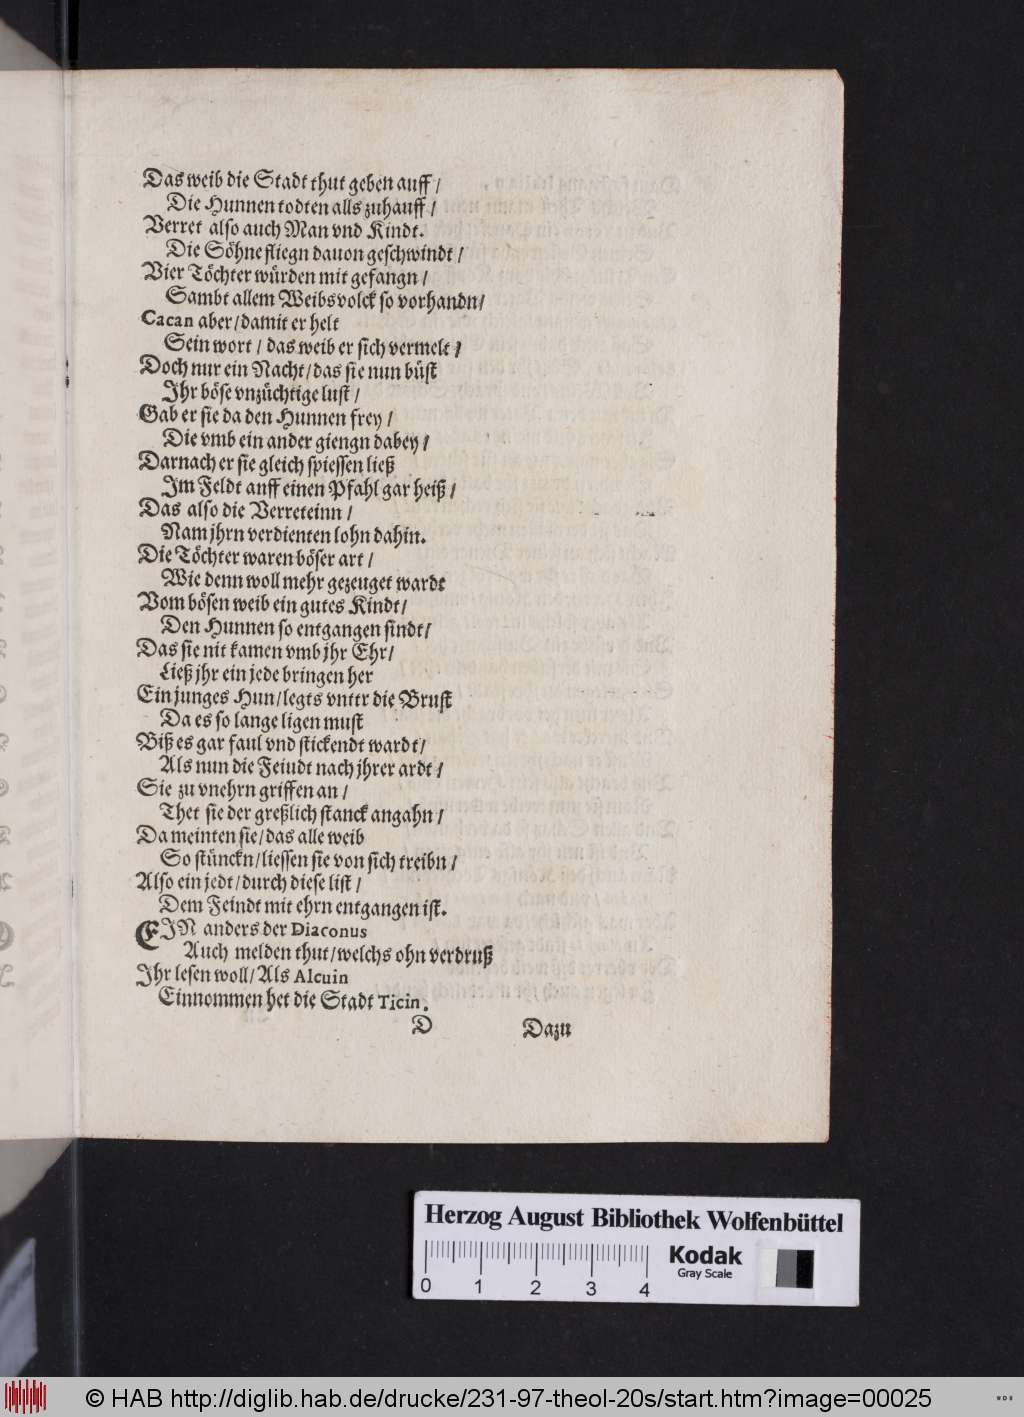 Das weib die Stadt thut geben auff /
Die Hunnen todten alls zuhauff /
Verret also auch Man vnd Kindt.
Die Söhne fliegn dauon geschwindt /
Vier Töchter würden mit gefangn /
Sambt allem Weibsvolck so vorhandn /
Cacan aber / damit er helt
Sein wort / das weib er sich vermelt /
Doch nur ein Nacht / das sie nun büst
Ihr böse vnzüchtige lust /
Gab er sie da den Hunnen frey /
Die vmb ein ander giengn dabey /
Darnach er sie gleich spiessen ließ
Im Feldt auff einen Pfahl gar heiß /
Das also die Verreteinn /
Nam jhrn verdienten lohn dahin.
Die Töchter waren böser art /
Wie denn woll mehr gezeuget wardt
Vom bösen weib ein gutes Kindt /
Den Hunnen so entgangen sindt /
Das sie nit kamen vmb jhr Ehr /
Ließ jhr ein jede bringen her
Ein junges Hun / legts vnttr die Brust
Da es so lange ligen must
Biß es gar faul vnd stickendt wardt /
Als nun die Feiudt nach jhrer ardt /
Sie zu vnehrn griffen an /
Thet sie der greßlich stanck angahn /
Da meinten sie / das alle weib
So stünckn / liessen sie von sich treibn /
Also ein jedt / durch diese list /
Dem Feindt mit ehrn entgangen ist.
EIN anders der Diaconus
Auch melden thut / welchs ohn verdruß
Ihr lesen woll / Als Alcuin
Einnommen het die Stadt Ticin.
D Dazu
Herzog August Bibliothek Wolfenbüttel
0 1 2 3 4
Kodak
Gray Scale
© HAB http://diglib.hab.de/drucke/231-97-theol-20s/start.htm?image=00025